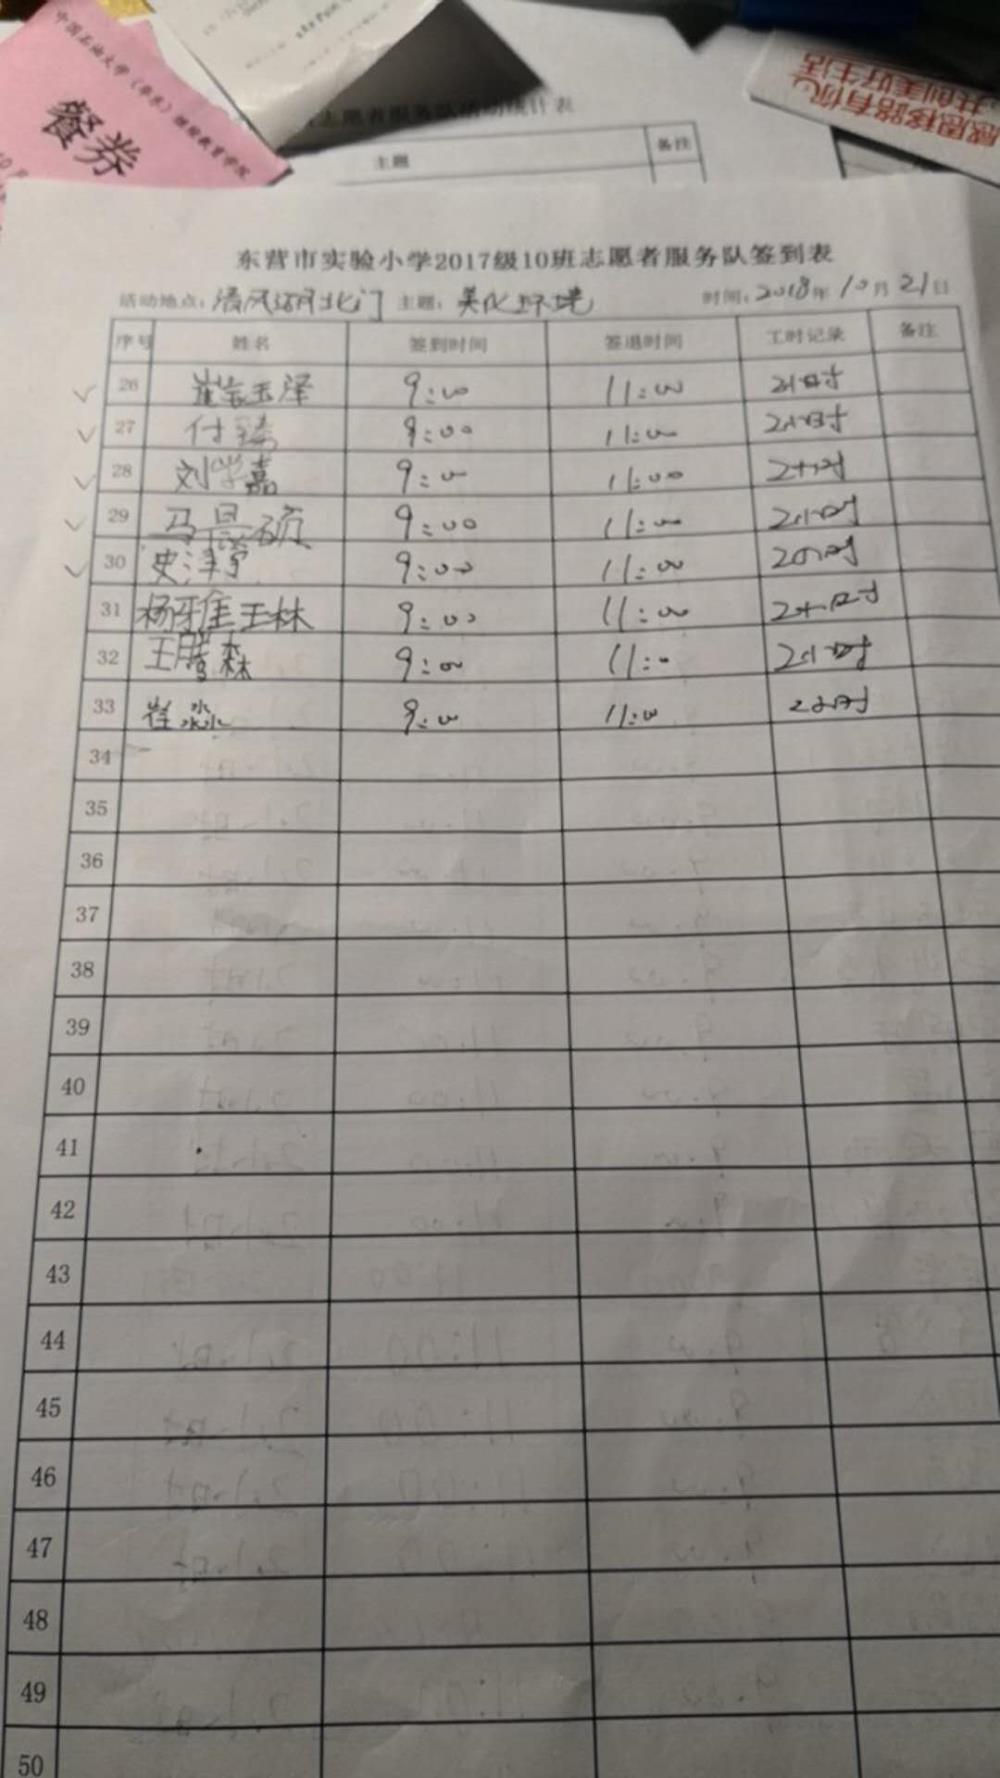 中国石油大学（华东）继续教育学院
餐券
志愿者服务队活动统计表
主题 备注
感恩移路有你
共创美好生活
东营市实验小学2017级10班志愿者服务队签到表
活动地点：清风湖北门 主题：美化环境 时间：2018年10月21日
序号 姓名 签到时间 签退时间 工时记录 备注
26 崔玉泽 9:00 11:00 2小时
27 付 9:00 11:00 2小时
28 刘学嘉 9:00 11:00 2小时
29 马晨硕 9:00 11:00 2小时
30 史泽宇 9:00 11:00 2小时
31 杨雅琳 9:00 11:00 2小时
32 王腾森 9:00 11:00 2小时
33 崔淼 9:00 11:00 2小时
34
35
36
37
38
39
40
41
42
43
44
45
46
47
48
49
50